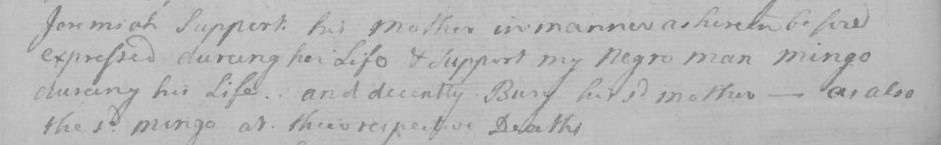 Jeremiah Support his Mother in manner as herein before
expressed during her Life & Support my Negro man mingo
during his Life . and decently Bury his sd mother — as also
the sd mingo at their respective Deaths